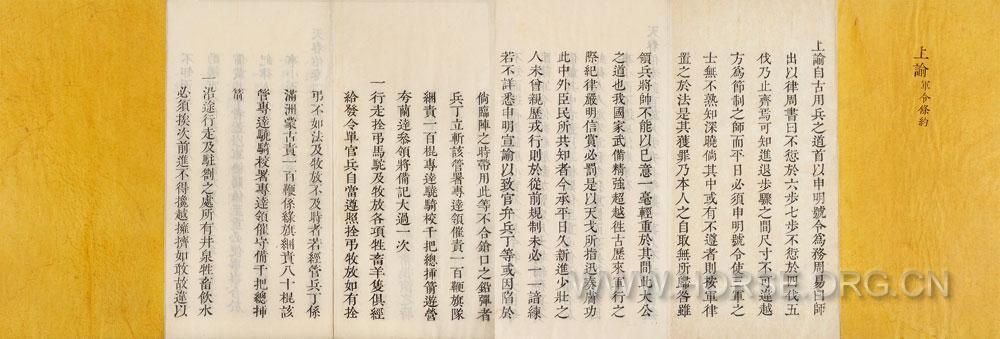 上諭軍令條約
上諭自古用兵之道首以申明號令為務周易曰師
出以律周書曰不愆於六步七步不愆於四伐五
伐乃止齊焉可知進退步驟之間尺寸不可違越
方為節制之師而平日必須申明號令使三軍之
士無不熟知深曉倘其中或有不遵者則按軍律
置之於法是其獲罪乃本人之自取無所歸咎雖
領兵將帥不能以己意一毫輕重於其間此大公
之道也我國家武備精強超越往古歷來軍行之
際紀律嚴明信賞必罰是以天戈所指迅奏膚功
此中外臣民所共知者今承平日久新進少壯之
人未曾親歷戎行則於從前規制未必一一諳練
若不詳悉申明宣諭以致官弁兵丁等或因陷於
倘臨陣之時帶用此等不合鎗口之鉛彈者
兵丁立斬該管署專達領催責一百鞭旗隊
綑責一百棍專達驍騎校千把總插箭遊營
夸蘭達參領將備記大過一次
一行走拴弔馬駝及牧放各項牲畜羊隻俱經
給發令單官兵自當遵照拴弔牧放如有拴
弔不如法及牧放不及時者若經管兵丁係
滿洲蒙古責一百鞭係綠旗綑責八十棍該
管專達驍騎校署專達領催守備千把總插
箭
一沿途行走及駐劄之處所有井泉牲畜飲水
必須挨次前進不得攙越擁擠如敢故違以
WWW.HORSE.ORG.CN